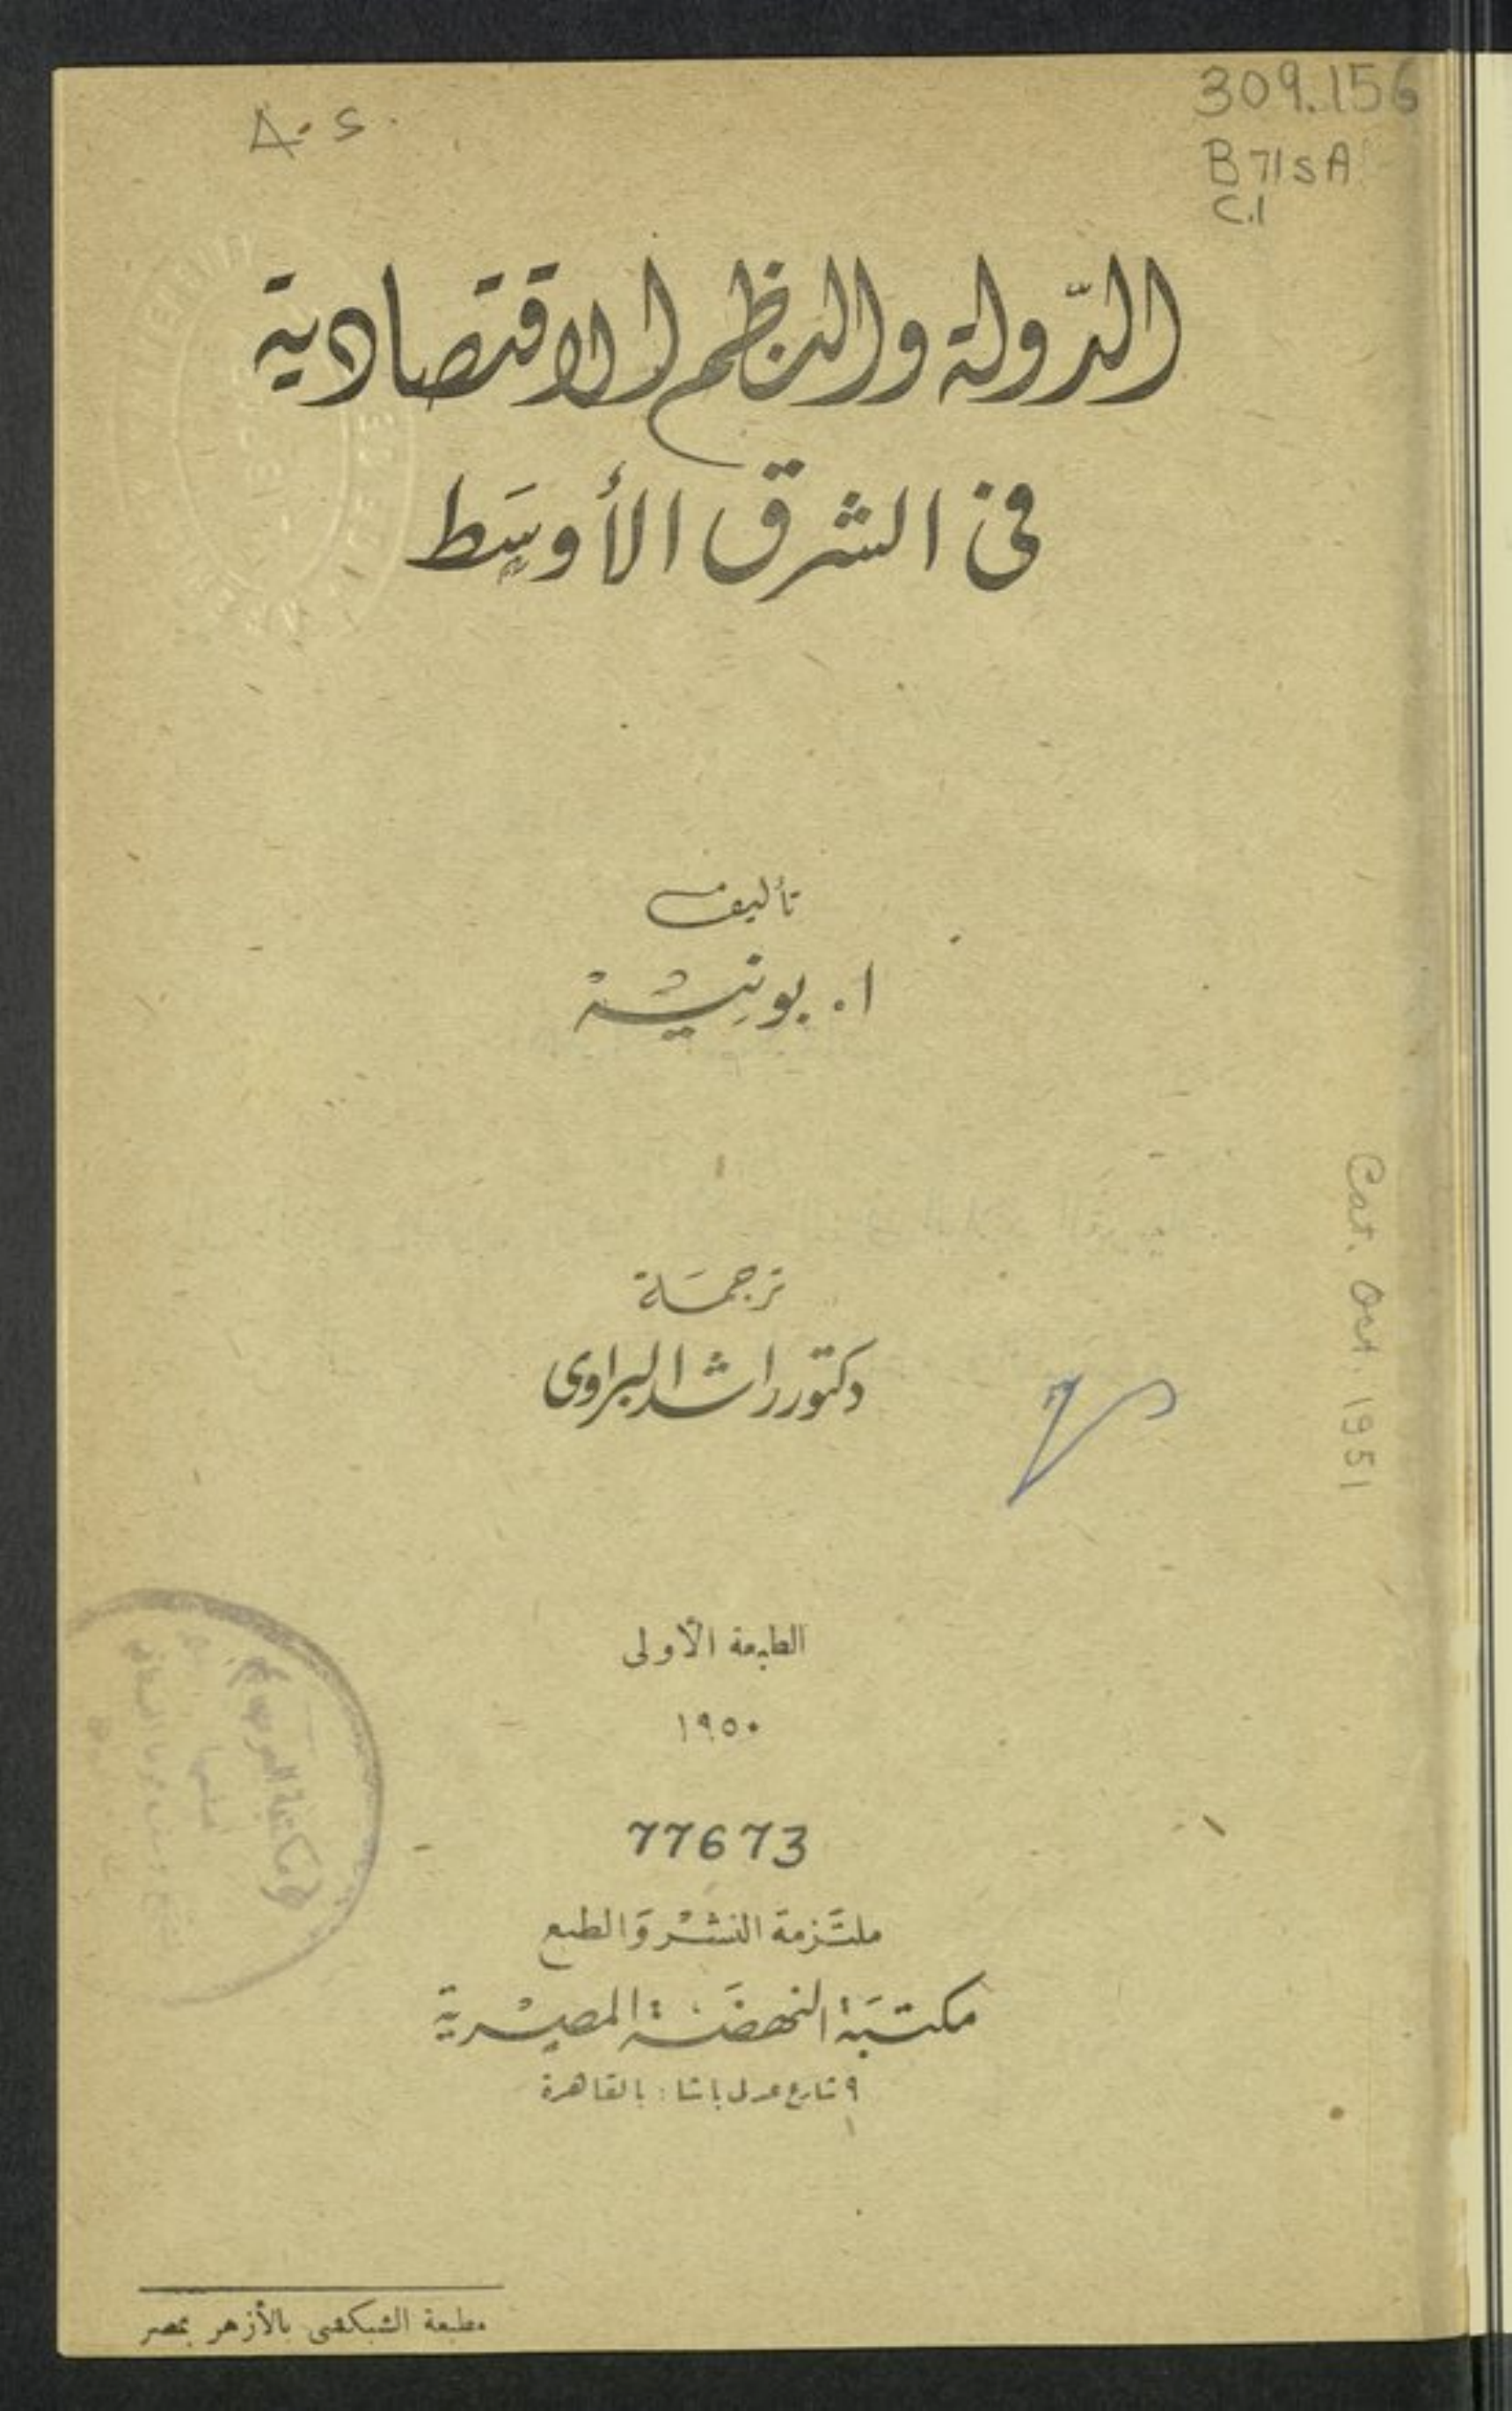 A.S.
309.156
B71sA
C.1
الدّولة والنظم الاقتصادية
فى الشرق الأوسَط
تأليف
ا. بونيشة
ترجمَة
دكتور راشد البراوى
Cat. Oct. 1951
الطبعة الأولى
١٩٥٠
77673
ملتَزمة النشْر وَالطبع
مكتبَة النهضَة المصْرية
٩ شارع عدلى باشا : بالقاهرة
مطبعة الشبكشى بالأزهر بمصر